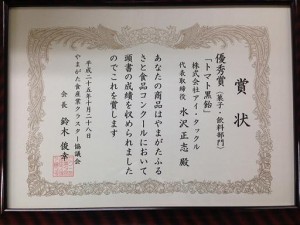 賞状
優秀賞(菓子・飲料部門)
「トマト黒飴」
株式会社アイ・タックル
代表取締役 水沢正志 殿
あなたの商品はやまがたふる
さと食品コンクールにおいて
頭書の成績を収められました
のでこれを賞します
平成二十五年十月二十八日
やまがた食産業クラスター協議会
会長 鈴木俊幸